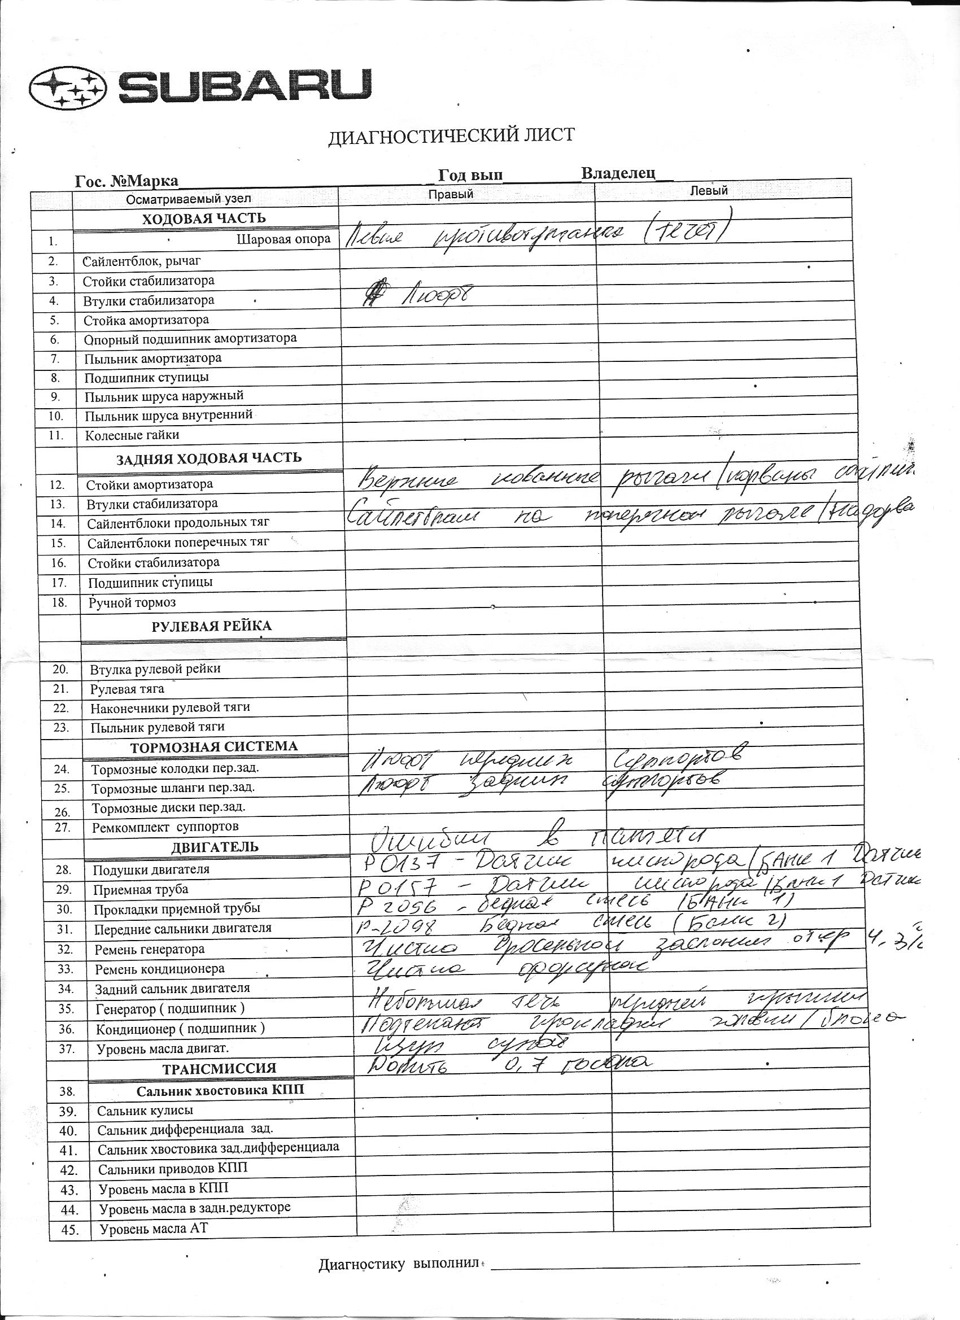 SUBARU
ДИАГНОСТИЧЕСКИЙ ЛИСТ
Гос. №Марка Год вып Владелец
Осматриваемый узел Правый Левый
ХОДОВАЯ ЧАСТЬ
1. Шаровая опора Левая противотуманка (течет)
2. Сайлентблок, рычаг
3. Стойки стабилизатора
4. Втулки стабилизатора Люфт
5. Стойка амортизатора
6. Опорный подшипник амортизатора
7. Пыльник амортизатора
8. Подшипник ступицы
9. Пыльник шруса наружный
10. Пыльник шруса внутренний
11. Колесные гайки
ЗАДНЯЯ ХОДОВАЯ ЧАСТЬ
12. Стойки амортизатора Верхние кованные рычаги (порваны
13. Втулки стабилизатора
14. Сайлентблоки продольных тяг на поперечном рычаге (Надорва
15. Сайлентблоки поперечных тяг
16. Стойки стабилизатора
17. Подшипник ступицы
18. Ручной тормоз
РУЛЕВАЯ РЕЙКА
20. Втулка рулевой рейки
21. Рулевая тяга
22. Наконечники рулевой тяги
23. Пыльник рулевой тяги
ТОРМОЗНАЯ СИСТЕМА
24. Тормозные колодки пер.зад. Люфт передних суппортов
25. Тормозные шланги пер.зад. Люфт задних суппортов
26. Тормозные диски пер.зад.
27. Ремкомплект суппортов
ДВИГАТЕЛЬ Ошибки в памяти
28. Подушки двигателя P0137 - Датчик кислорода (Банк 1 Датчик
29. Приемная труба P0157 - Датчик кислорода (Банк 1 Датчик
30. Прокладки приемной трубы P2096 - бедная смесь (БАНК 1)
31. Передние сальники двигателя P-2098 Бедная смесь (Банк 2)
32. Ремень генератора Чистка дросельной заслонки
33. Ремень кондиционера Чистка форсунок
34. Задний сальник двигателя
35. Генератор ( подшипник ) Небольшая течь передней крышки
36. Кондиционер ( подшипник ) Подтекают прокладки
37. Уровень масла двигат. Щуп сухой
ТРАНСМИССИЯ Долить 0,7
38. Сальник хвостовика КПП
39. Сальник кулисы
40. Сальник дифференциала зад.
41. Сальник хвостовика зад.дифференциала
42. Сальники приводов КПП
43. Уровень масла в КПП
44. Уровень масла в задн.редукторе
45. Уровень масла АТ
Диагностику выполнил